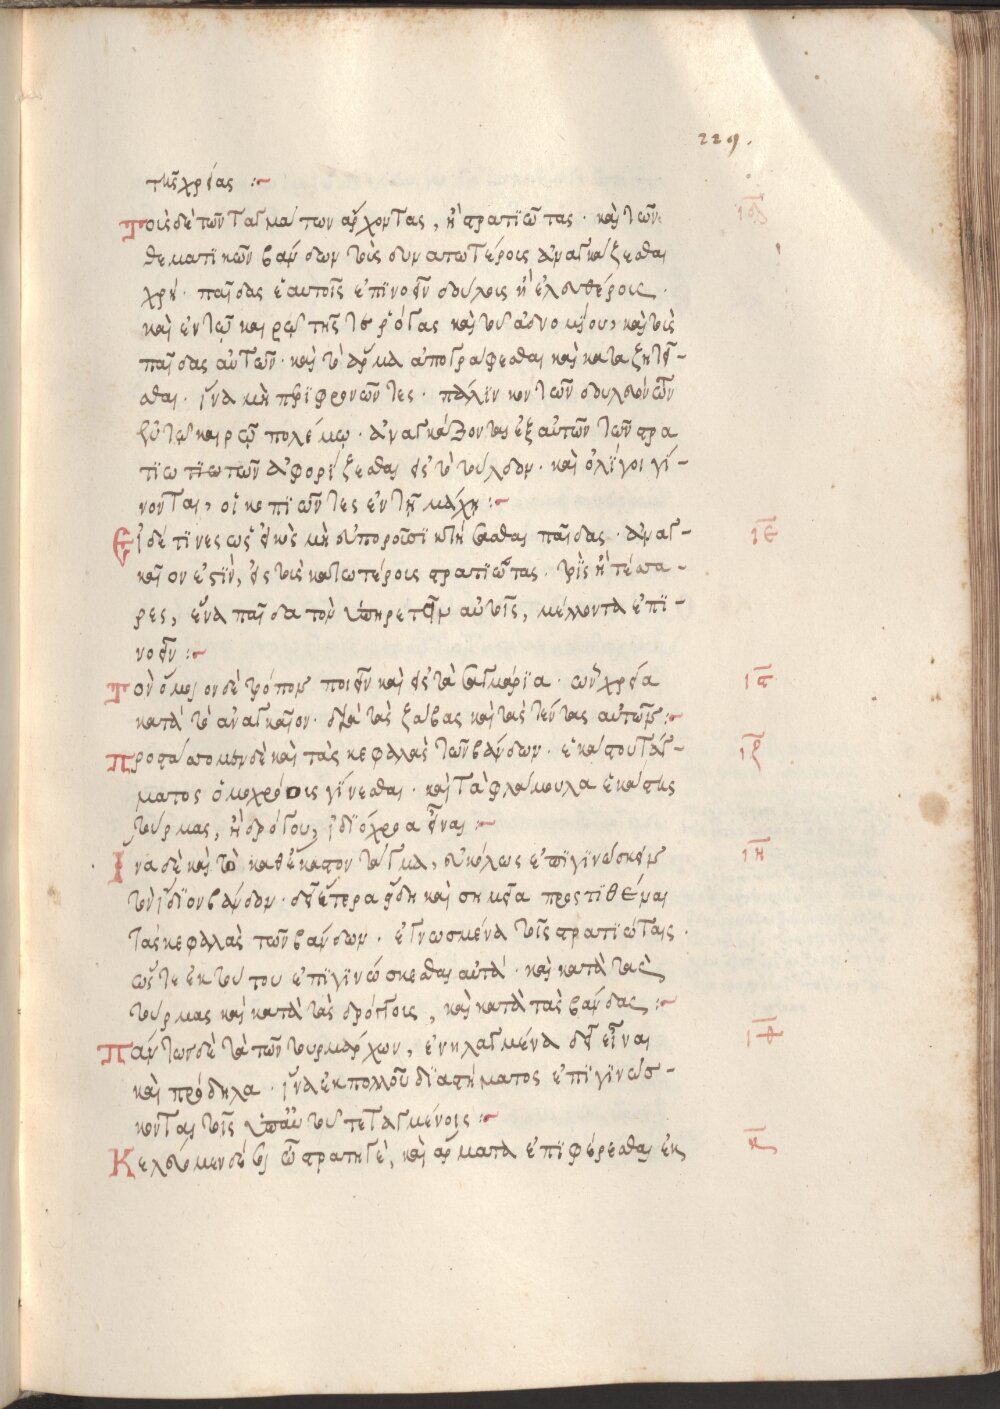 229.
τῆς χρείας :~
Τοὺς δὲ τῶν ταγμάτων ἄρχοντας, ἢ στρατιώτας. καὶ τῶν ιδ
θεματικῶν βάνδων τοὺς δυνατωτέρους ἀναγκάζεσθαι
χρή. παῖδας ἑαυτοῖς ἐπινοεῖν δούλους ἢ ἐλευθέρους.
καὶ ἐν τῷ καιρῷ τῆς τε ῥόγας καὶ τοῦ ἀδνουμίου, καὶ τοὺς
παῖδας αὐτῶν. καὶ τὰ ἄρμα ἀπογράφεσθαι καὶ καταζητεῖ-
σθαι. ἵνα μὴ περιφρονῶντες. πάλιν κον τῶν δουλευόντων
ἐν τῷ καιρῷ πολέμῳ. ἀναγκάζονται ἐξ αὐτῶν τῶν στρα
τιωτιωτῶν ἀφορίζεσθαι εἰς τὸ τοῦλδον. καὶ ὀλίγοι γί-
νονται, οἱ κοπιῶντες ἐν τῇ μάχῃ :~
Εἰ δέ τινες ὡς εἰκὸς μὴ εὐποροῦσι κτήσασθαι παῖδας. ἀναγ- ιε
καῖον ἐστὶν, εἰς τοὺς κατωτέρους στρατιώτας. τρεῖς ἢ τέσσα-
ρες, ἕνα παῖδα τὸν ὑπηρετεῖν αὐτοῖς, μέλλοντα ἐπι-
νοεῖν :~
Τὸν ὅμοιον δὲ τρόπον ποιεῖν καὶ εἰς τὰ σαγμάρια. ὧν χρεία ιϛ
κατὰ τὸ ἀναγκαῖον. διὰ τὰς ζάβας καὶ τὰς τέντας αὐτῶν :~
Προστάσσομεν δὲ καὶ τὰς κεφαλὰς τῶν βάνδων. ἑκάστου τάγ- ιζ
ματος ὁμοχρόους γίνεσθαι. καὶ τὰ φλάμουλα ἑκάστης
τούρμας, ἢ δρόγγου, ἰδιόχροα εἶναι :~
Ἵνα δὲ καὶ τὸ καθέκαστον τάγμα, εὐκόλως ἐπιγινώσκειν ιη
τὸ ἴδιον βάνδον. δεῖ ἕτερα εἴδη καὶ σημεῖα προστιθέναι
τὰς κεφαλὰς τῶν βάνδων. ἐγνωσμένα τοῖς στρατιώταις.
ὥστε ἐκ τούτου ἐπιγινώσκεσθαι αὐτά. καὶ κατὰ τὰς
τούρμας καὶ κατὰ τοὺς δρόγγους, καὶ κατὰ τὰς βάνδας :~
Πάντως δὲ τὰ τῶν τουρμάρχων, ἐνηλαγμένα δεῖ εἶναι ιθ
καὶ πρόδηλα. ἵνα ἐκ πολλοῦ διαστήματος ἐπιγινώσ-
κονται τοῖς ὑπ' αὐτοῦ τεταγμένοις :~
Κελεύομεν δέ σοι ὦ στρατηγὲ, καὶ ἄρματα ἐπιφέρεσθαι ἐκ κ